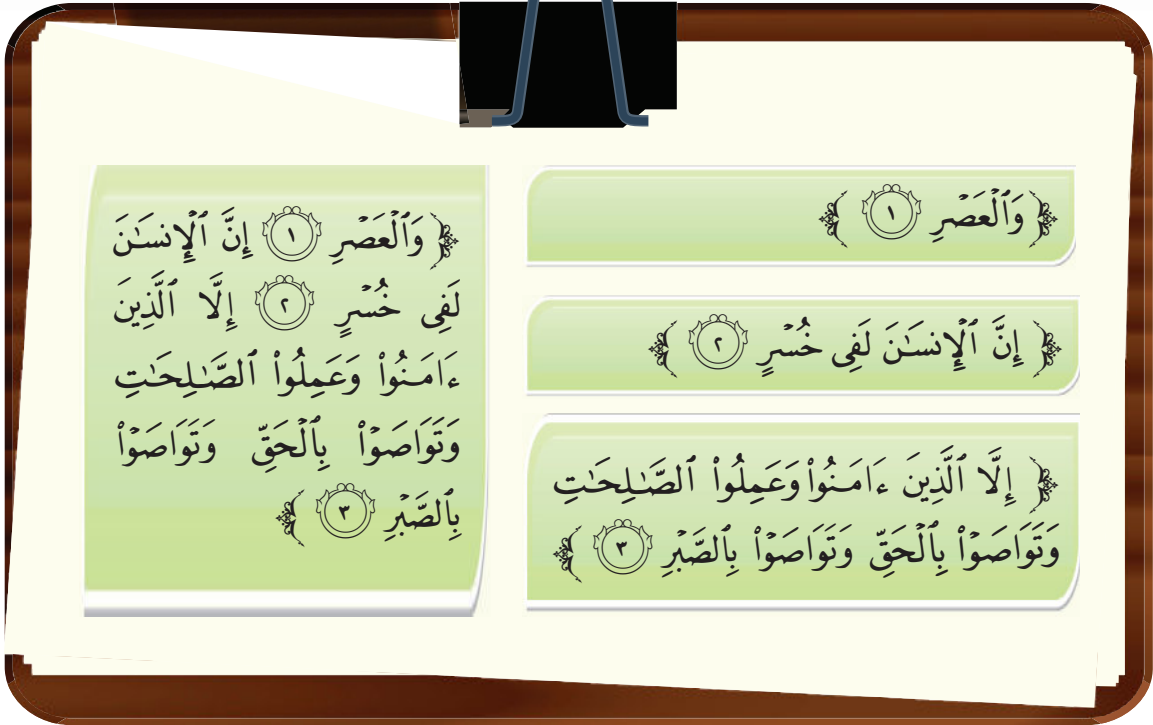 ﴿ وَٱلْعَصْرِ ١ ﴾
﴿ إِنَّ ٱلْإِنسَـٰنَ لَفِى خُسْرٍ ٢ ﴾
﴿ إِلَّا ٱلَّذِينَ ءَامَنُوا۟ وَعَمِلُوا۟ ٱلصَّـٰلِحَـٰتِ
وَتَوَاصَوْا۟ بِٱلْحَقِّ وَتَوَاصَوْا۟ بِٱلصَّبْرِ ٣ ﴾
﴿ وَٱلْعَصْرِ ١ إِنَّ ٱلْإِنسَـٰنَ
لَفِى خُسْرٍ ٢ إِلَّا ٱلَّذِينَ
ءَامَنُوا۟ وَعَمِلُوا۟ ٱلصَّـٰلِحَـٰتِ
وَتَوَاصَوْا۟ بِٱلْحَقِّ وَتَوَاصَوْا۟
بِٱلصَّبْرِ ٣ ﴾